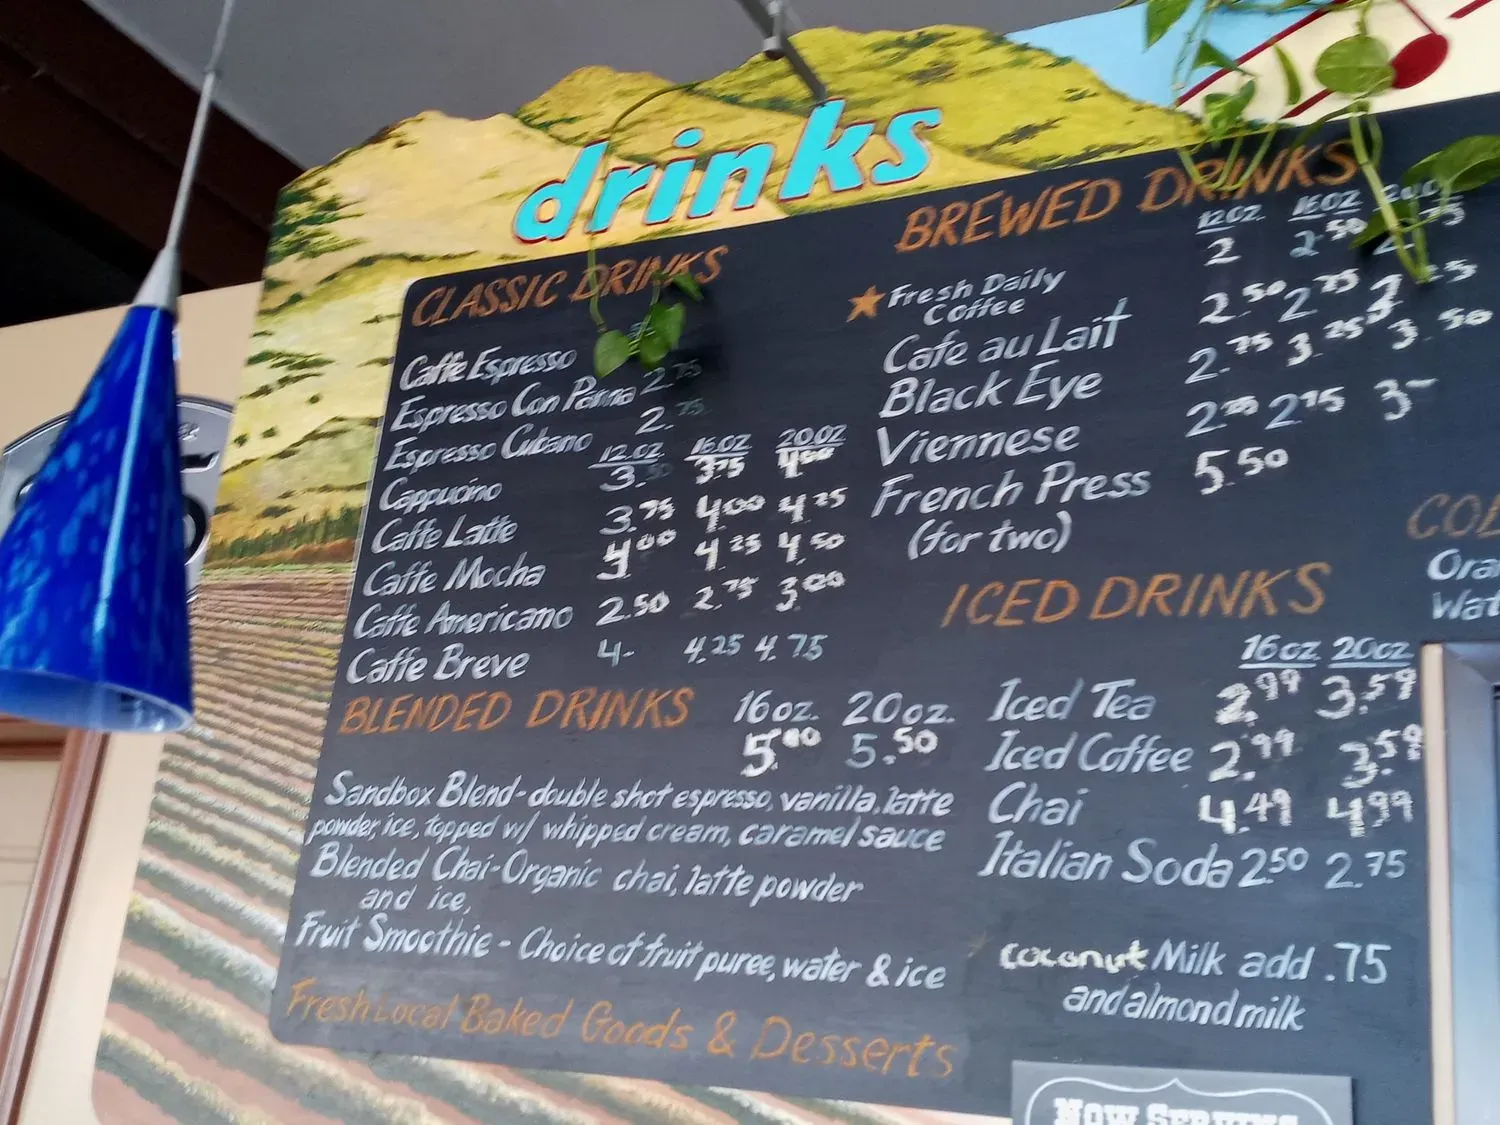 drinks
CLASSIC DRINKS
Caffe Espresso
Espresso Con Panna 2.75
Espresso Cubano 2.75
12oz 16oz 20oz
Cappucino 3.50 3.75 4.00
Caffe Latte 3.75 4.00 4.25
Caffe Mocha 4.00 4.25 4.50
Caffe Americano 2.50 2.75 3.00
Caffe Breve 4- 4.25 4.75
BLENDED DRINKS 16oz. 20oz.
5.00 5.50
Sandbox Blend-double shot espresso, vanilla, latte
powder, ice, topped w/ whipped cream, caramel sauce
Blended Chai-Organic chai, latte powder
and ice,
Fruit Smoothie - Choice of fruit puree, water & ice
Fresh Local Baked Goods & Desserts
BREWED DRINKS
12oz. 16oz 20oz
Fresh Daily 2 2.50 2.75
Coffee
Cafe au Lait 2.50 2.75 3.25
Black Eye 2.75 3.25 3.50
Viennese 2.75 3-
French Press 5.50
(for two)
ICED DRINKS
16oz 20oz
Iced Tea 2.99 3.59
Iced Coffee 2.99 3.59
Chai 4.49 4.99
Italian Soda 2.50 2.75
coconut Milk add .75
and almond milk
NOW SERVING